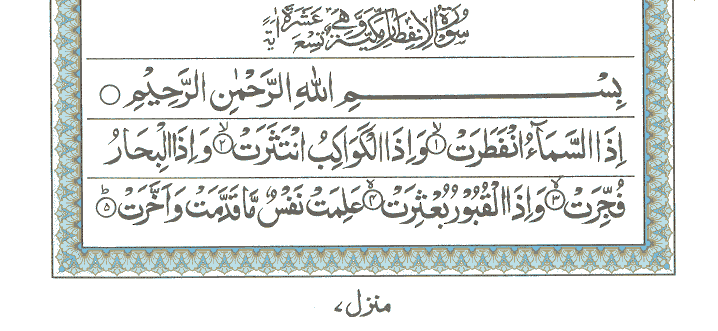 سُوْرَةُ الْاِنْفِطَارِ مَكِّيَّةٌ وَّهِيَ تِسْعَ عَشَرَةَ اٰيَةً
بِسْمِ اللهِ الرَّحْمٰنِ الرَّحِيْمِ ○
اِذَا السَّمَآءُ انْفَطَرَتْ ۙ﴿۱﴾ وَاِذَا الْكَوَاكِبُ انْتَثَرَتْ ۙ﴿۲﴾ وَاِذَا الْبِحَارُ
فُجِّرَتْ ۙ﴿۳﴾ وَاِذَا الْقُبُوْرُ بُعْثِرَتْ ۙ﴿۴﴾ عَلِمَتْ نَفْسٌ مَّا قَدَّمَتْ وَاَخَّرَتْ ؕ﴿۵﴾
منزل ۷